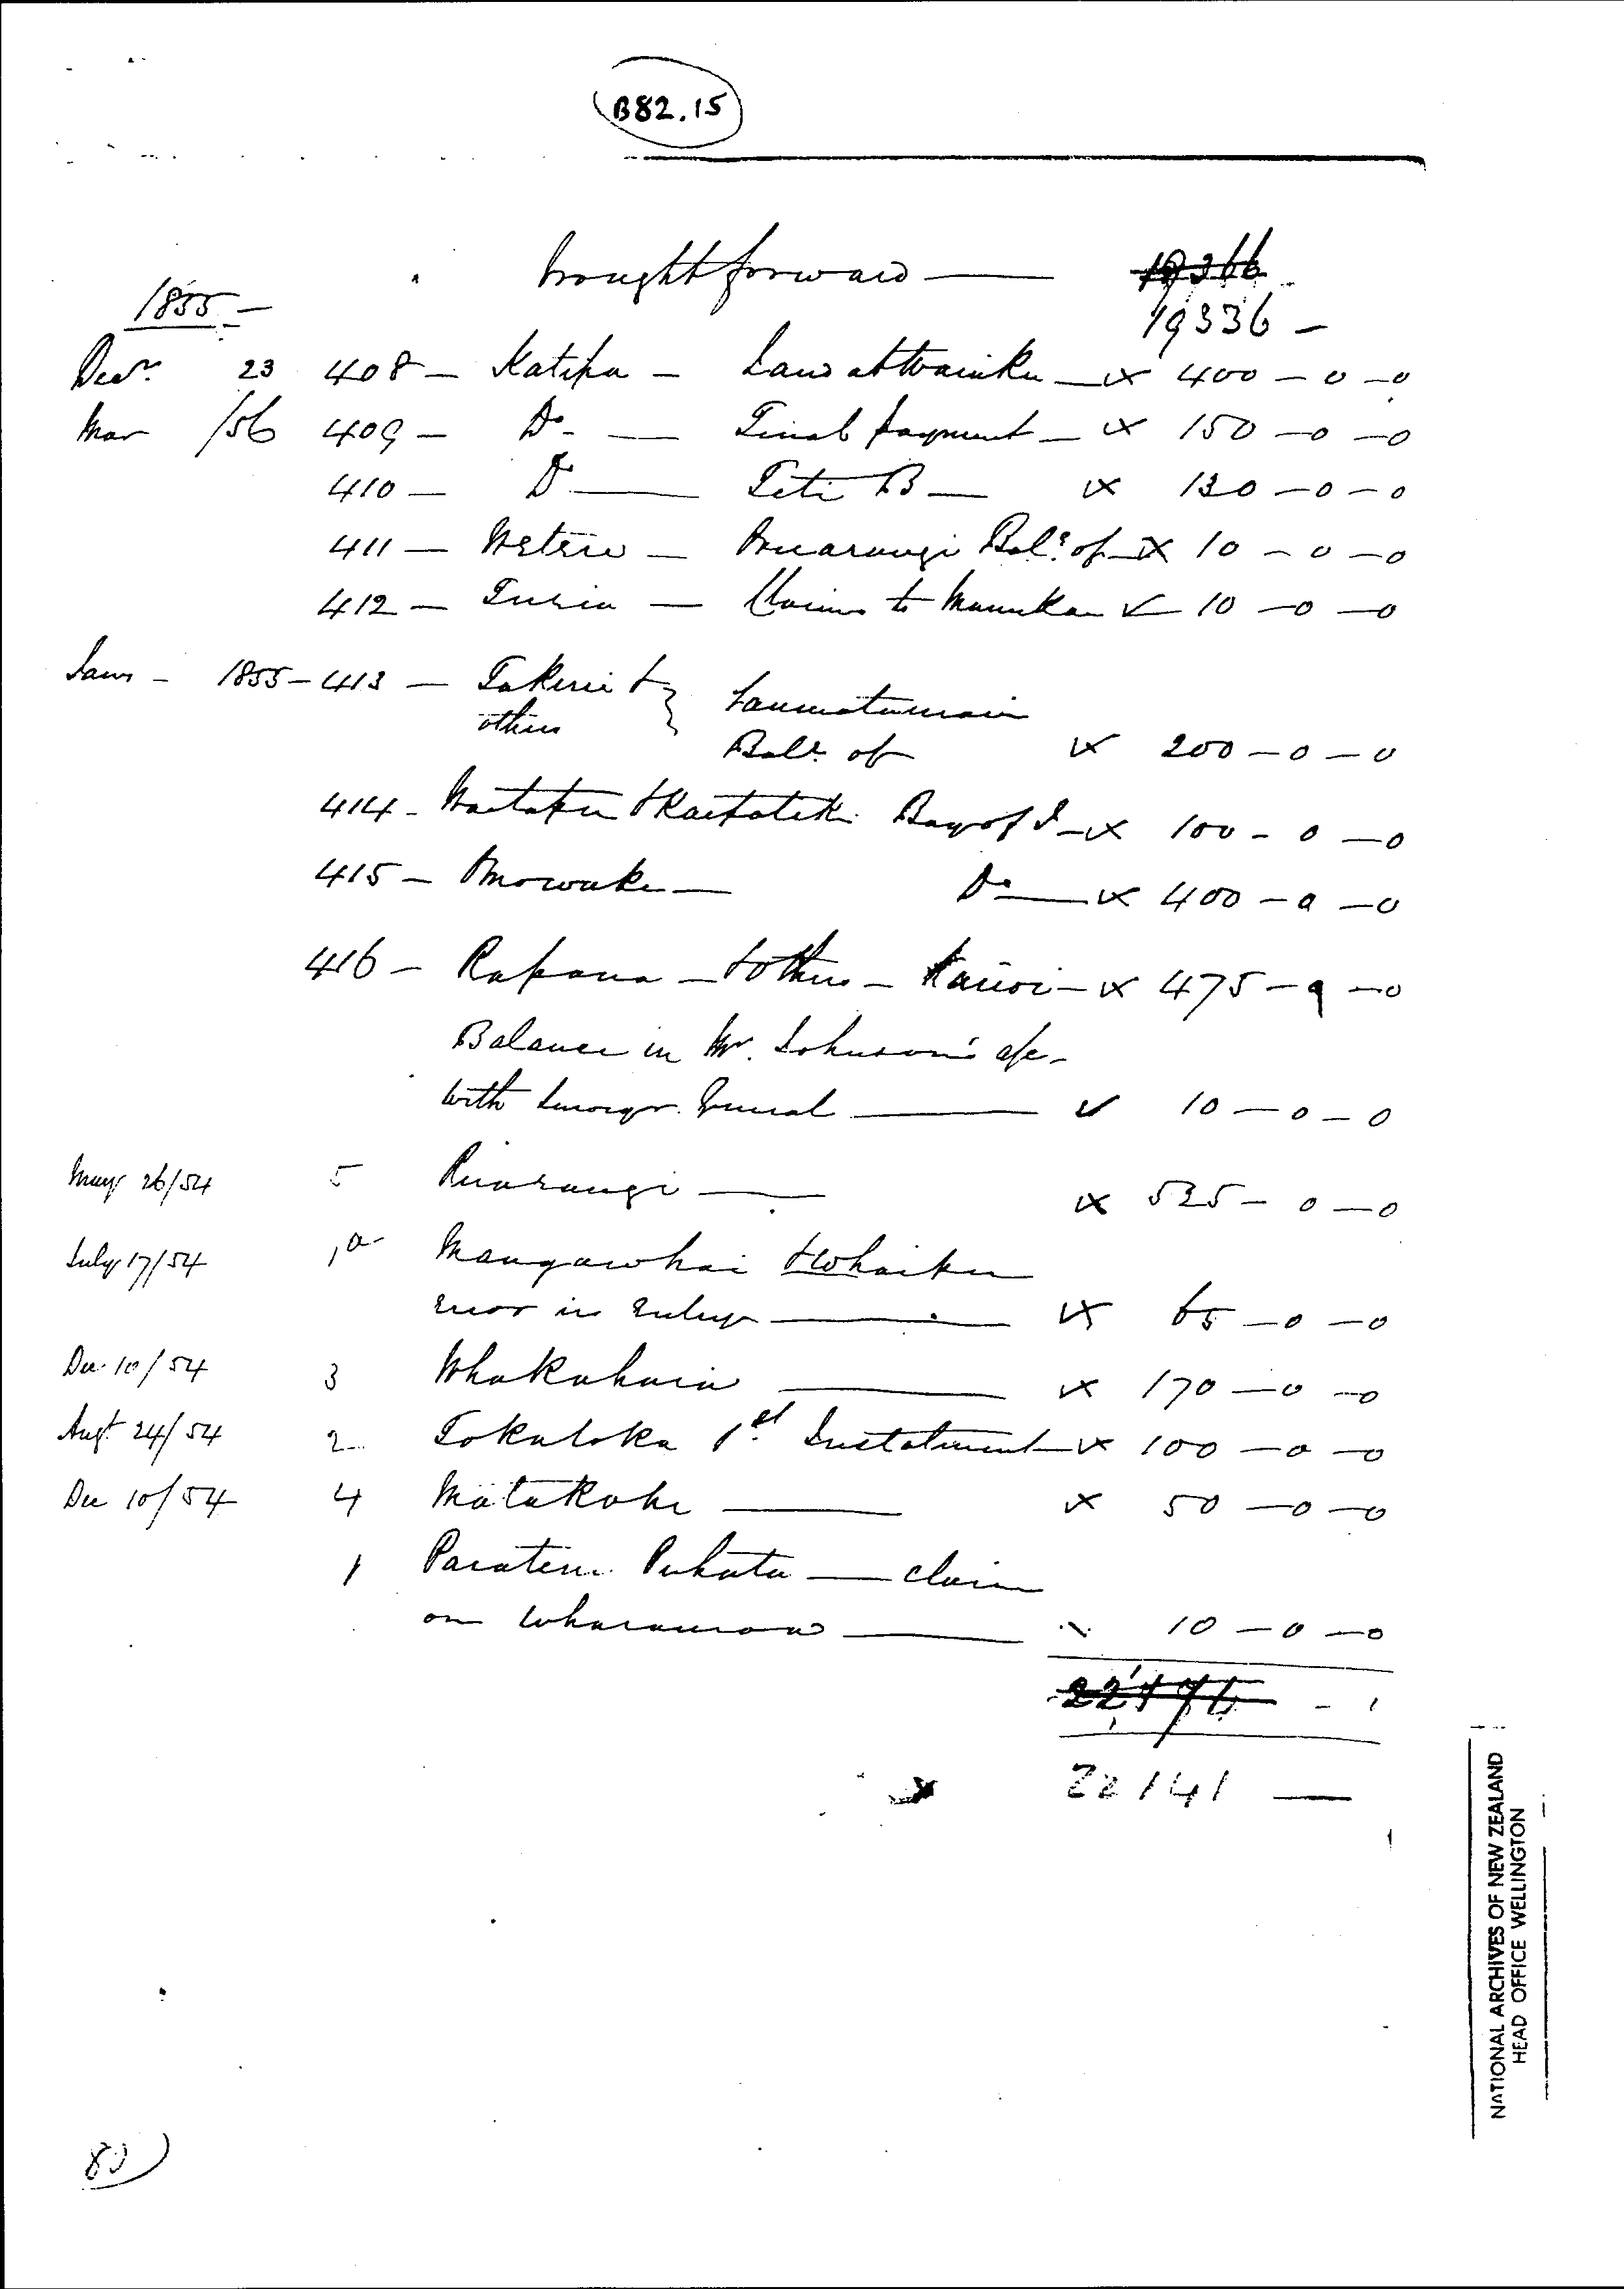 B82.15
brought forward — 19366
19336 —
1855 —
Decr. 23 408 — Katipa — Land at Waiuku — x 400 — 0 — 0
Mar /56 409 — Do. — Final payment — x 150 — 0 — 0
410 — Do — Titi B — x 130 — 0 — 0
411 — Wetere — Ruarangi Bale. of — x 10 — 0 — 0
412 — — Claims to Manukau ✓ 10 — 0 — 0
1855 — 413 — Takerei &
others } Taumatumairi
Bale. of x 200 — 0 — 0
414 — & Bay of I — x 100 — 0 — 0
415 — Do — x 400 — 0 — 0
416 — — & others — — x 475 — 0 — 0
Balance in Mr. Johnson's a/c —
with General — ✓ 10 — 0 — 0
May 26/54 5 Ruarangi — x 525 — 0 — 0
July 17/54 1a Mangawhai &
error in entry — x 65 — 0 — 0
Dec 10/54 3 — x 170 — 0 — 0
Augt 24/54 2 Tokatoka 1st Instalment — x 100 — 0 — 0
Dec 10/54 4 Matakohe — x 50 — 0 — 0
1 Paratene Puhata — claim
on — 10 — 0 — 0
22141 —
NATIONAL ARCHIVES OF NEW ZEALAND
HEAD OFFICE WELLINGTON